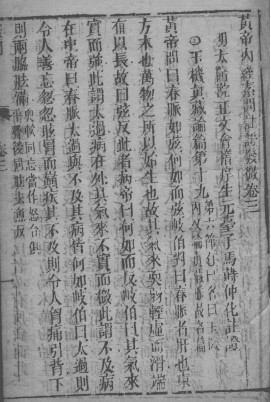 黃帝內經素問註證發微卷三
明太醫院正文會稽庠生元臺子馬蒔仲化註證
玉機真藏論篇第十九
黃帝問曰春脈如弦何如而弦岐伯對曰春脈者肝也東
方木也萬物之所以始生也故其氣來耎弱輕虛而滑端
直以長故曰弦反此者病帝曰何如而反岐伯曰其氣來
實而強此謂太過病在外其氣來不實而微此謂不及病
在中帝曰春脈太過與不及其病皆何如岐伯曰太過則
令人善忘忽忽眩冒而巔疾其不及則令人胸痛引背下
則兩脇胠滿